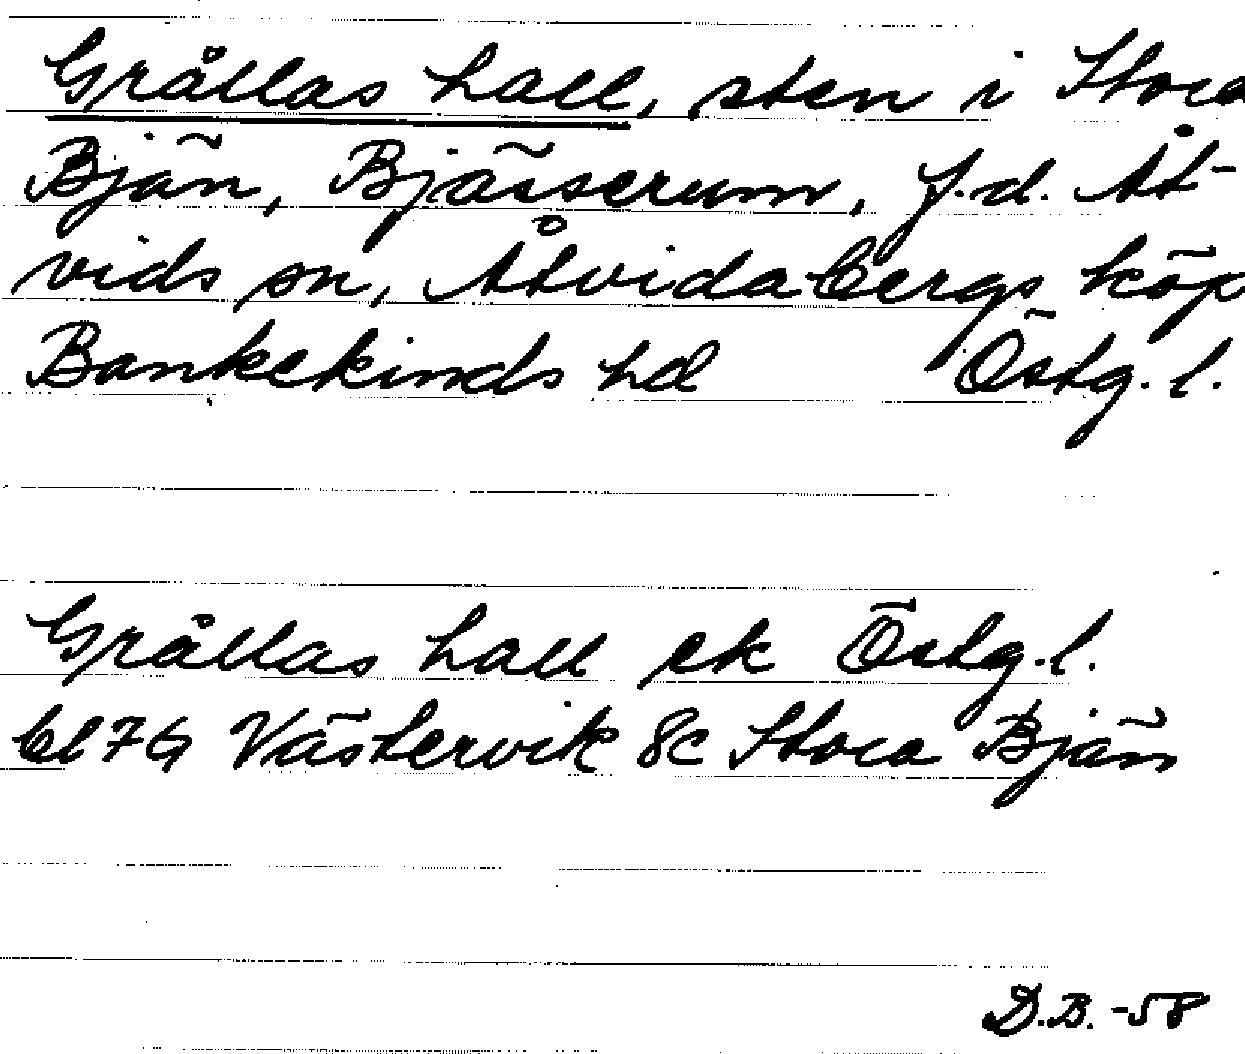 Grållas hall, sten i Stora
Bjän, Bjärserum, f.d. Åt-
vids sn, Åtvidabergs köp
Bankekinds hd Östg. l.
Grållas hall ek Östg. l.
bl 7G Västervik 8c Stora Bjän
D.B. -58